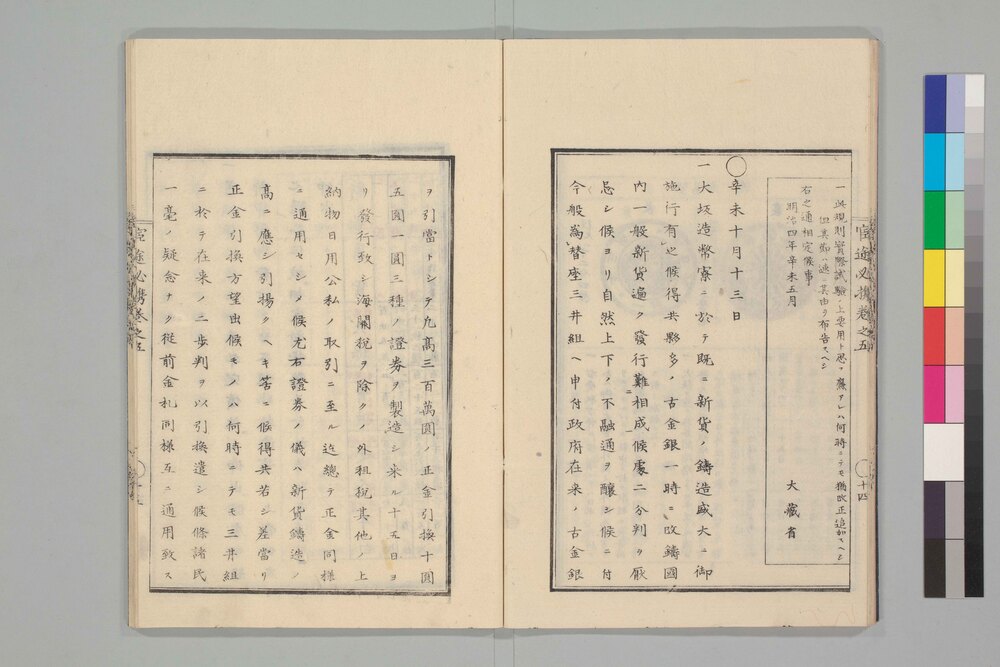 一此規則實際試驗ノ上要用ト思フ廉アレハ何時ニテモ猶改正追加スヘシ
但其節ハ速ニ其由ヲ布告スヘシ
右之通相定候事
明治四年辛未五月
大藏省
○辛未十月十三日
一大坂造幣寮ニ於テ既ニ新貨ノ鑄造盛大ニ御
施行有之候得共夥多ノ古金銀一時ニ改鑄國
內一般新貨遍ク發行難相成候處二分判ヲ厭
忌シ候ヨリ自然上下ノ不融通ヲ釀シ候ニ付
今般為替座三井組ヘ申付政府在來ノ古金銀
ヲ引當トシテ九高三百萬圓ノ正金引換十圓
五圓一圓三種ノ證券ヲ製造シ来ル十五日ヨ
リ發行致シ海關稅ヲ除クノ外租稅其他ノ上
納物日用公私ノ取引ニ至ル迄總テ正金同様
ニ通用セシメ候尤右證券ノ儀ハ新貨鑄造ノ
高ニ應シ引揚クヘキ筈ニ候得共若シ差當リ
正金引換方望出候モノハ何時ニテモ三井組
ニ於テ在来ノ二歩判ヲ以引換遣シ候條諸民
一毫ノ疑念ナク從前金札同様互ニ通用致ス
官途必携巻之五
十四
官途必携巻之五